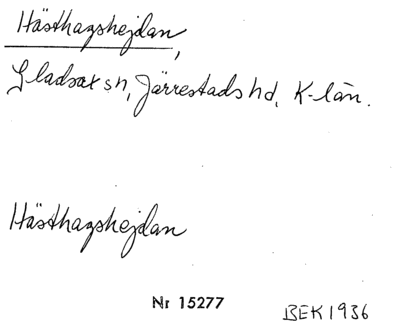 Hästhagshejdan,
Gladsax sn, Järrestads hd, K-län.
Hästhagshejdan
Nr 15277
BEK 1936